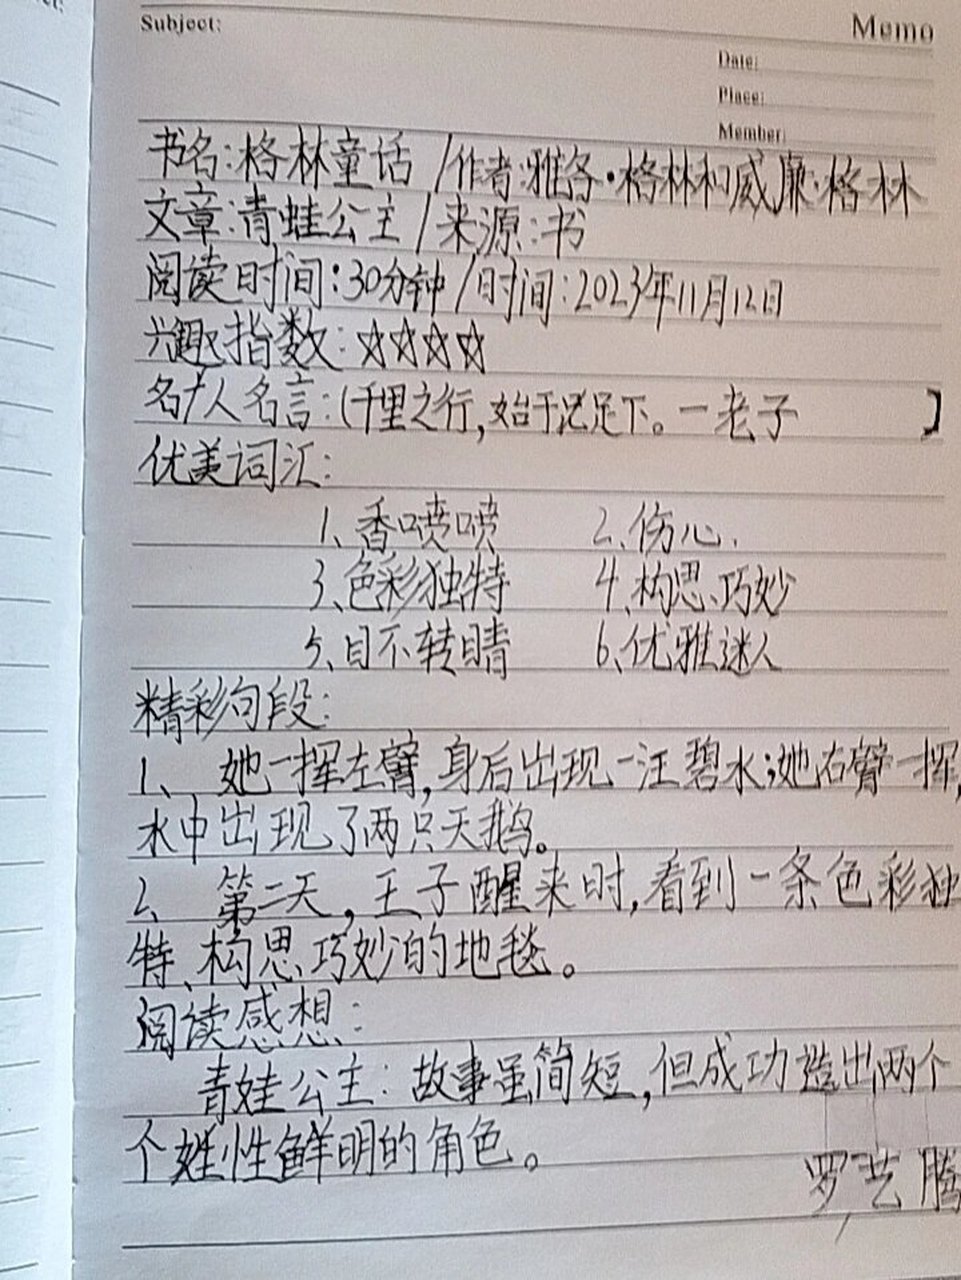 Subject:
Memo
Date:
Place:
Member:
书名:格林童话/作者:雅各·格林和威廉·格林
文章:青蛙公主/来源:书
阅读时间:30分钟/时间:2023年11月12日
兴趣指数:☆☆☆☆
名人名言:(千里之行,始于足下。一老子】
优美词汇:
1、香喷喷 2、伤心.
3、色彩独特 4、构思巧妙
5、目不转睛 6、优雅迷人
精彩句段:
1、她一挥左臂,身后出现一汪碧水;她右臂一挥,
水中出现了两只天鹅。
2、第二天,王子醒来时,看到一条色彩独
特、构思巧妙的地毯。
阅读感想:
青蛙公主:故事虽简短,但成功造出两个
个性鲜明的角色。
罗艺腾